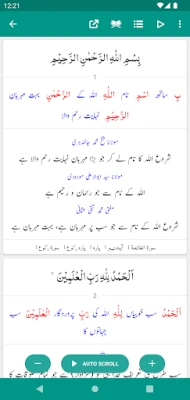 12:21
بِسْمِ اللّٰهِ الرَّحْمٰنِ الرَّحِيْمِ
1
بِ ساتھ اسْمِ نام اللّٰهِ اللہ کے الرَّحْمٰنِ بہت مہربان
الرَّحِيْمِ نہایت رحم والا
مولانا فتح محمد جالندہری
شروع اللہ کا نام لے کر جو بڑا مہربان نہایت رحم والا ہے
مولانا سید ابوالاعلی مودودی
اللہ کے نام سے جو رحمان و رحیم ہے
مفتی محمد تقی عثمانی
شروع اللہ کے نام سے جو سب پر مہربان ہے، بہت مہربان ہے
اَلْحَمْدُ لِلّٰهِ رَبِّ الْعٰلَمِيْنَ
2
اَلْحَمْدُ سب خوبیاں لِلّٰهِ اللہ کی رَبِّ پروردگار الْعٰلَمِيْنَ سب
جہانوں کا
AUTO SCROLL